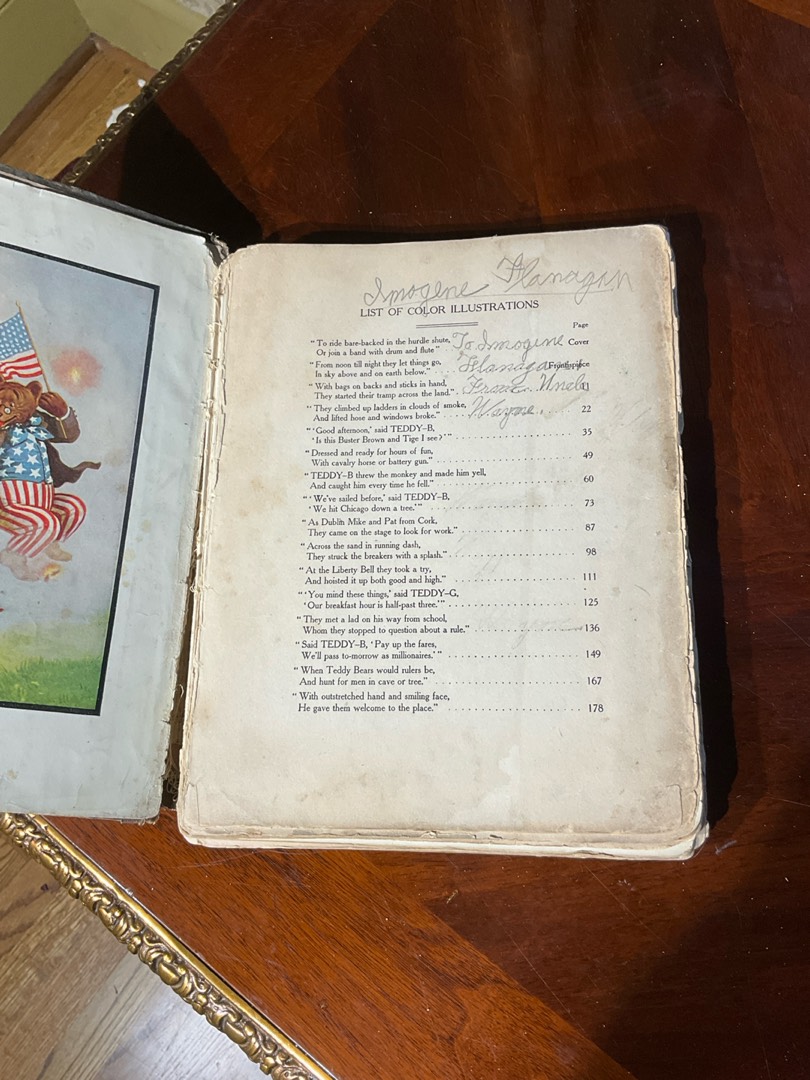 Imogene Flanagan
LIST OF COLOR ILLUSTRATIONS
Page
"To ride bare-backed in the hurdle shute, To Imogine Cover
Or join a band with drum and flute"
"From noon till night they let things go, Flanagan Frontispiece
In sky above and on earth below."
"With bags on backs and sticks in hand, From Uncle 11
They started their tramp across the land."
"They climbed up ladders in clouds of smoke, Wayne.
And lifted hose and windows broke." 22
"'Good afternoon,' said TEDDY-B,
'Is this Buster Brown and Tige I see?'" 35
"Dressed and ready for hours of fun,
With cavalry horse or battery gun." 49
"TEDDY-B threw the monkey and made him yell,
And caught him every time he fell." 60
"'We've sailed before,' said TEDDY-B,
'We hit Chicago down a tree.'" 73
"As Dublin Mike and Pat from Cork,
They came on the stage to look for work." 87
"Across the sand in running dash,
They struck the breakers with a splash." 98
"At the Liberty Bell they took a try,
And hoisted it up both good and high." 111
"'You mind these things,' said TEDDY-G,
'Our breakfast hour is half-past three.'" 125
"They met a lad on his way from school,
Whom they stopped to question about a rule." 136
"Said TEDDY-B, 'Pay up the fares,
We'll pass to-morrow as millionaires.'" 149
"When Teddy Bears would rulers be,
And hunt for men in cave or tree." 167
"With outstretched hand and smiling face,
He gave them welcome to the place." 178